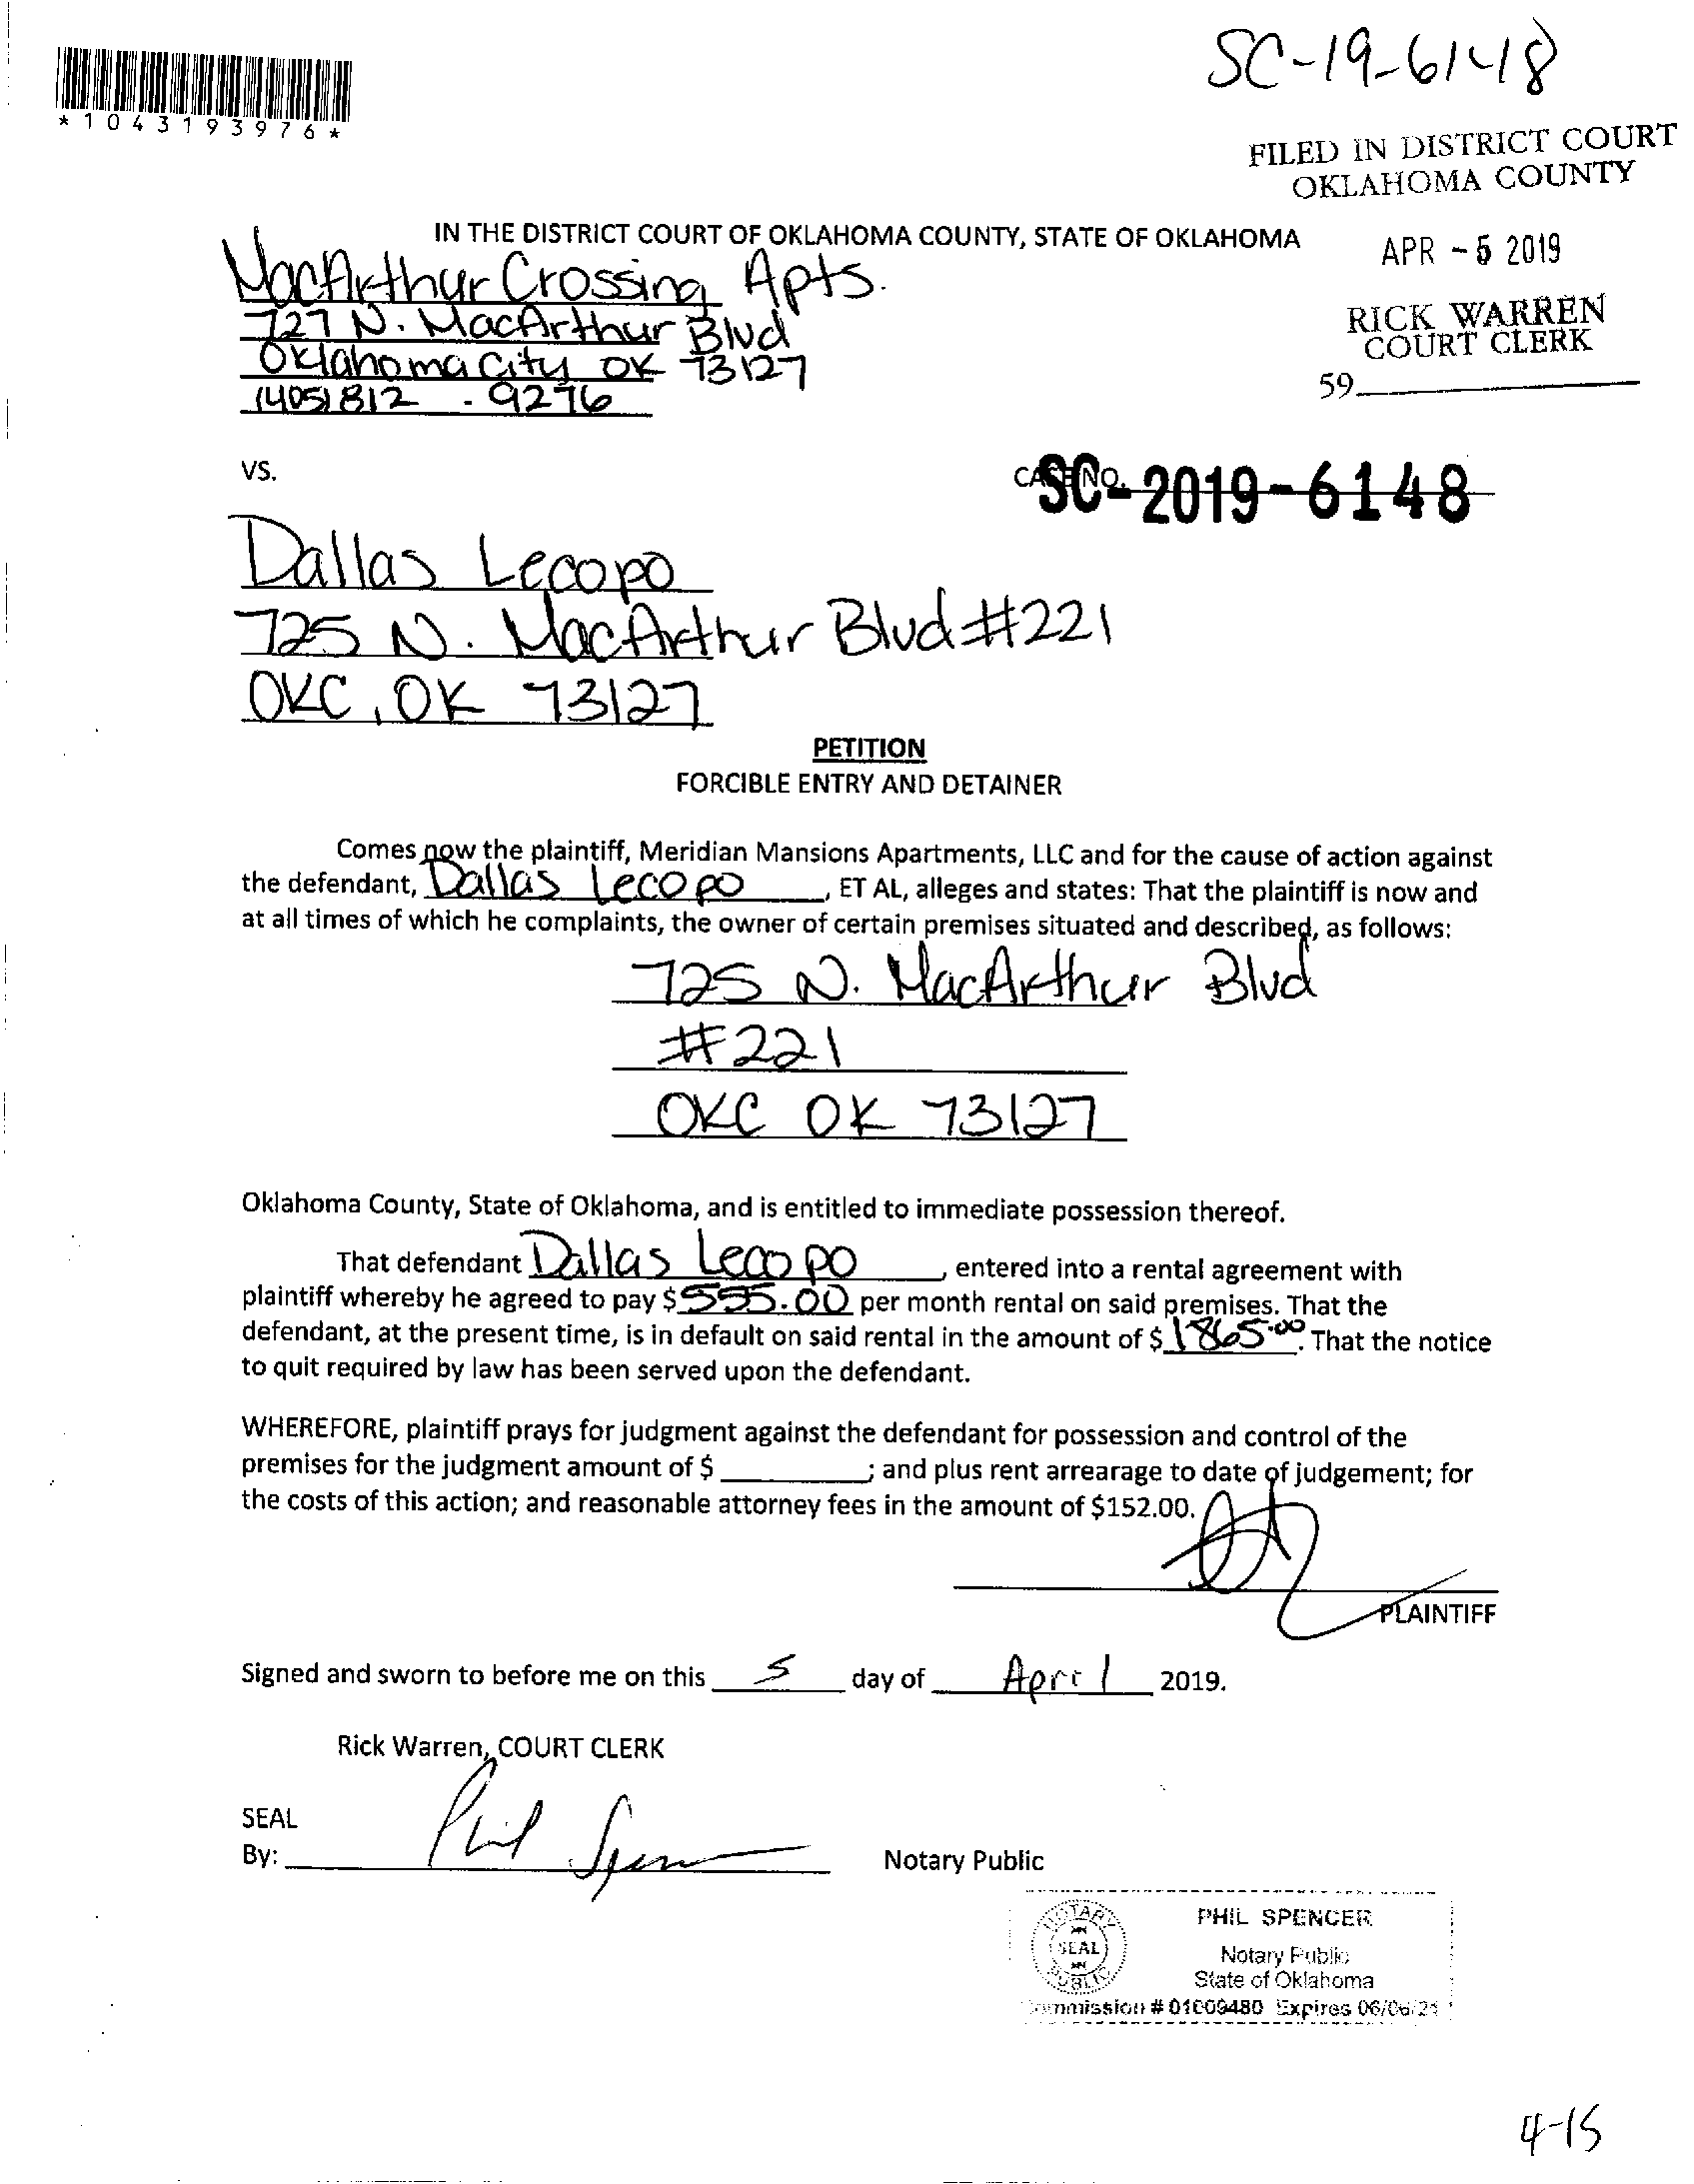 SC-19-6148
*1043193976*
FILED IN DISTRICT COURT
OKLAHOMA COUNTY
IN THE DISTRICT COURT OF OKLAHOMA COUNTY, STATE OF OKLAHOMA
APR - 5 2019
MacArthur Crossing Apts.
727 N. MacArthur Blvd
Oklahoma City OK 73127
(405) 812 - 9276
RICK WARREN
COURT CLERK
59
VS.
CASE NO. SC-2019-6148
Dallas Lecopo
725 N. MacArthur Blvd #221
OKC, OK 73127
PETITION
FORCIBLE ENTRY AND DETAINER
Comes now the plaintiff, Meridian Mansions Apartments, LLC and for the cause of action against
the defendant, Dallas Lecopo, ET AL, alleges and states: That the plaintiff is now and
at all times of which he complaints, the owner of certain premises situated and described, as follows:
725 N. MacArthur Blvd
#221
OKC OK 73127
Oklahoma County, State of Oklahoma, and is entitled to immediate possession thereof.
That defendant Dallas Lecopo, entered into a rental agreement with
plaintiff whereby he agreed to pay $555.00 per month rental on said premises. That the
defendant, at the present time, is in default on said rental in the amount of $1865.00. That the notice
to quit required by law has been served upon the defendant.
WHEREFORE, plaintiff prays for judgment against the defendant for possession and control of the
premises for the judgment amount of $ ________; and plus rent arrearage to date of judgement; for
the costs of this action; and reasonable attorney fees in the amount of $152.00.
PLAINTIFF
Signed and sworn to before me on this 5 day of April 2019.
Rick Warren, COURT CLERK
SEAL
By: Phil Spencer Notary Public
NOTARY
SEAL
PUBLIC
PHIL SPENCER
Notary Public
State of Oklahoma
Commission # 01009480 Expires 06/06/21
4-15